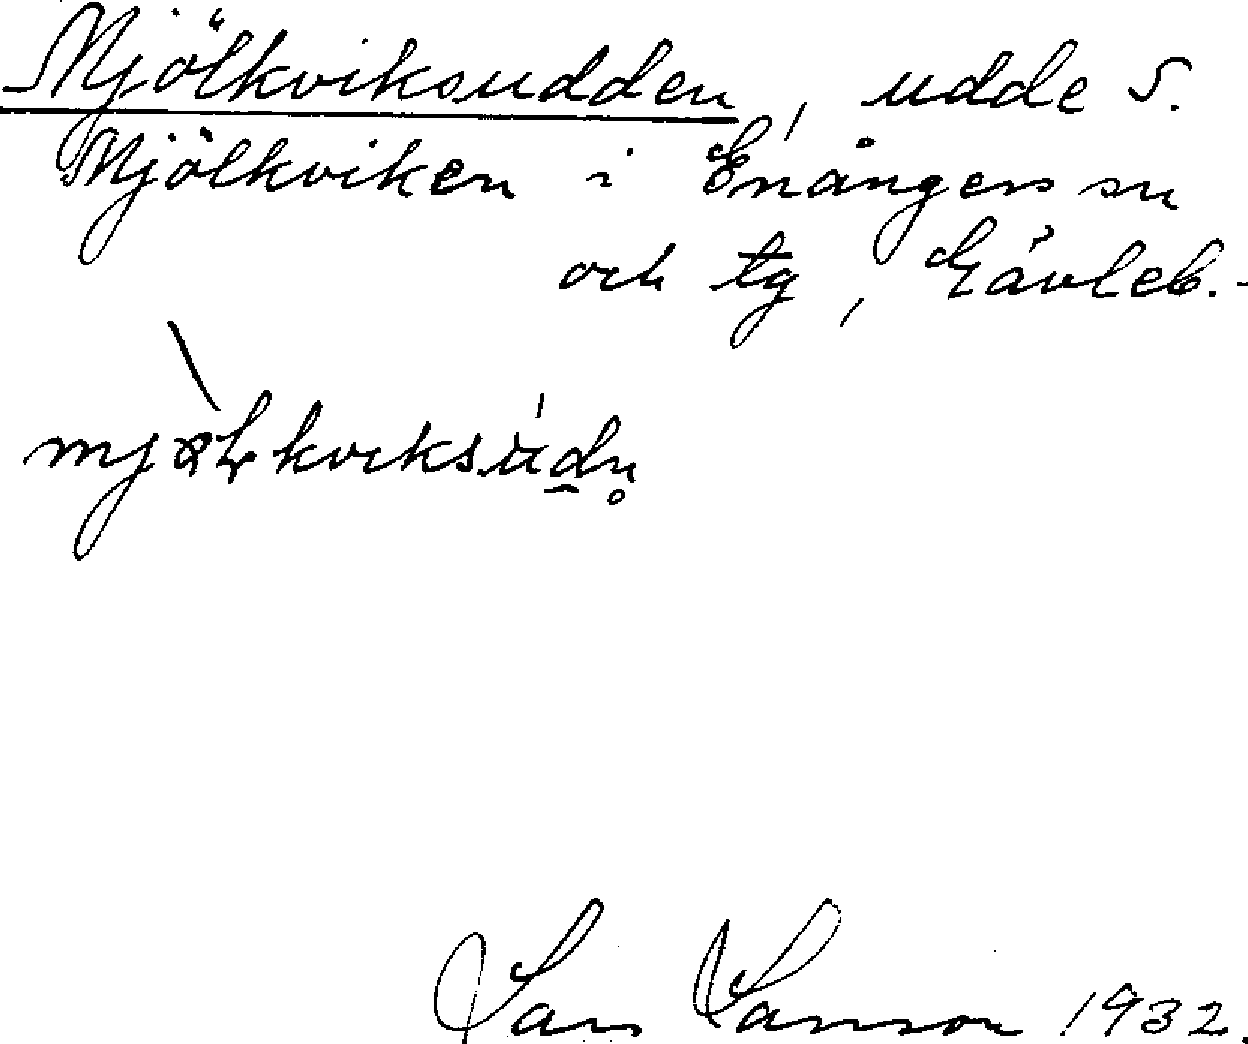 Mjölkviksudden, udde S.
Mjölkviken i Enångers sn
och tg, Gävleb.
Lars Larsson 1932.